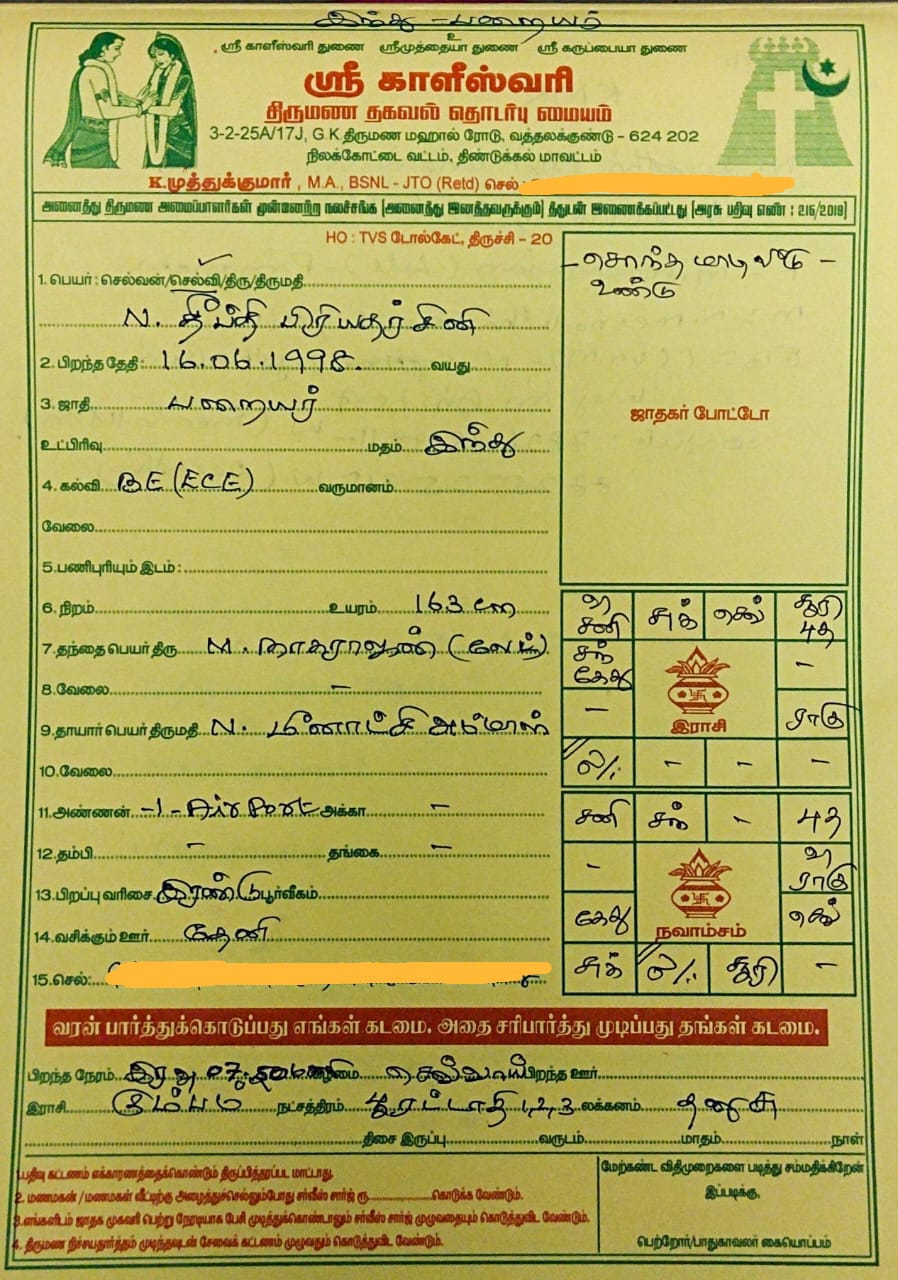 இந்து - பறையர்
உ
ஸ்ரீ காளீஸ்வரி துணை ஸ்ரீமுத்தையா துணை ஸ்ரீ கருப்பையா துணை
ஸ்ரீ காளீஸ்வரி
திருமண தகவல் தொடர்பு மையம்
3-2-25A/17J, G.K.திருமண மஹால் ரோடு, வத்தலக்குண்டு - 624 202
நிலக்கோட்டை வட்டம், திண்டுக்கல் மாவட்டம்
K.முத்துக்குமார் , M.A., BSNL - JTO (Retd) செல் :
அனைத்து திருமண அமைப்பாளர்கள் முன்னேற்ற நலச்சங்க (அனைத்து இனத்தவருக்கும்) தீத்துடன் இணைக்கப்பட்டது (அரசு பதிவு எண் : 215/2019)
HO : TVS டோல்கேட், திருச்சி - 20
- சொந்த மாடி வீடு -
உண்டு
1. பெயர் : செல்வன்/செல்வி/திரு/திருமதி
N. தீப்தி பிரியதர்சினி
2. பிறந்த தேதி: 16.06.1998. வயது
3. ஜாதி பறையர்
ஜாதகர் போட்டோ
உட்பிரிவு மதம் இந்து
4. கல்வி BE (ECE) வருமானம்
வேலை
5.பணிபுரியும் இடம் :
6. நிறம் உயரம் 163 cm
7. தந்தை பெயர் திரு M. நாகராஜன் (லேட்)
8.வேலை -
9. தாயார் பெயர் திருமதி N. மீனாட்சி அம்மாள்
10.வேலை
11. அண்ணன் -1- Air Port அக்கா -
12. தம்பி - தங்கை -
13. பிறப்பு வரிசை இரண்டு பூர்வீகம்
14. வசிக்கும் ஊர் தேனி
15. செல்:
சனி சுக் செவ் சூரி புத
சந் கேது -
இராசி
- ராகு
ல/. - - -
சனி சந் - புத
- ராகு
நவாம்சம்
கேது செவ்
சுக் ல/. சூரி -
வரன் பார்த்துக்கொடுப்பது எங்கள் கடமை. அதை சரிபார்த்து முடிப்பது தங்கள் கடமை.
பிறந்த நேரம் இரவு 07. கிழமை செவ்வாய் பிறந்த ஊர்
இராசி கும்பம் நட்சத்திரம் பூரட்டாதி 1,2,3 லக்கனம் தனுசு
திசை இருப்பு வருடம் மாதம் நாள்
1.பதிவு கட்டணம் எக்காரணத்தைக்கொண்டும் திருப்பித்தரப்பட மாட்டாது.
2. மணமகன் / மணமகள் வீட்டிற்கு அழைத்துசெல்லும்போது சர்வீஸ் சார்ஜ் ரூ. கொடுக்க வேண்டும்.
3.எங்களிடம் ஜாதக முகவரி பெற்று நேரடியாக பேசி முடித்துக்கொண்டாலும் சர்வீஸ் சார்ஜ் முழுவதையும் கொடுத்துவிட வேண்டும்.
4. திருமண நிச்சயதார்த்தம் முடிந்தவுடன் சேவைக் கட்டணம் முழுவதும் கொடுத்துவிட வேண்டும்.
மேற்கண்ட விதிமுறைகளை படித்து சம்மதிக்கிறேன்
இப்படிக்கு,
பெற்றோர்/பாதுகாவலர் கையொப்பம்